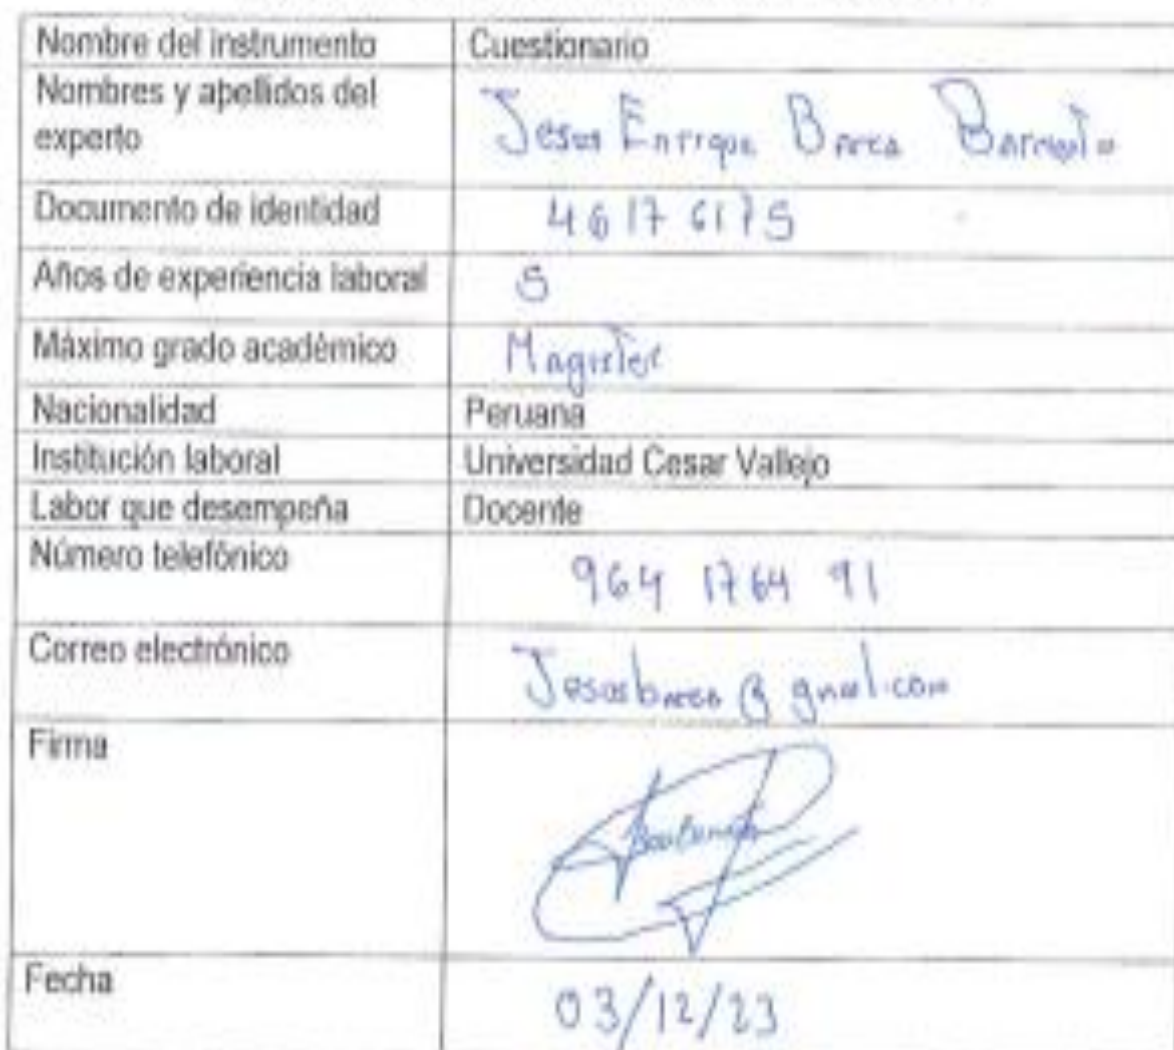 Nombre del instrumento Cuestionario
Nombres y apellidos del
experto
Jesus Enrique Barca
Documento de identidad 46176175
Años de experiencia laboral 5
Máximo grado académico Magister
Nacionalidad Peruana
Institución laboral Universidad Cesar Vallejo
Labor que desempeña Docente
Número telefónico 964 1764 91
Correo electrónico Jesusbarca@gmail.com
Firma
Fecha 03/12/23